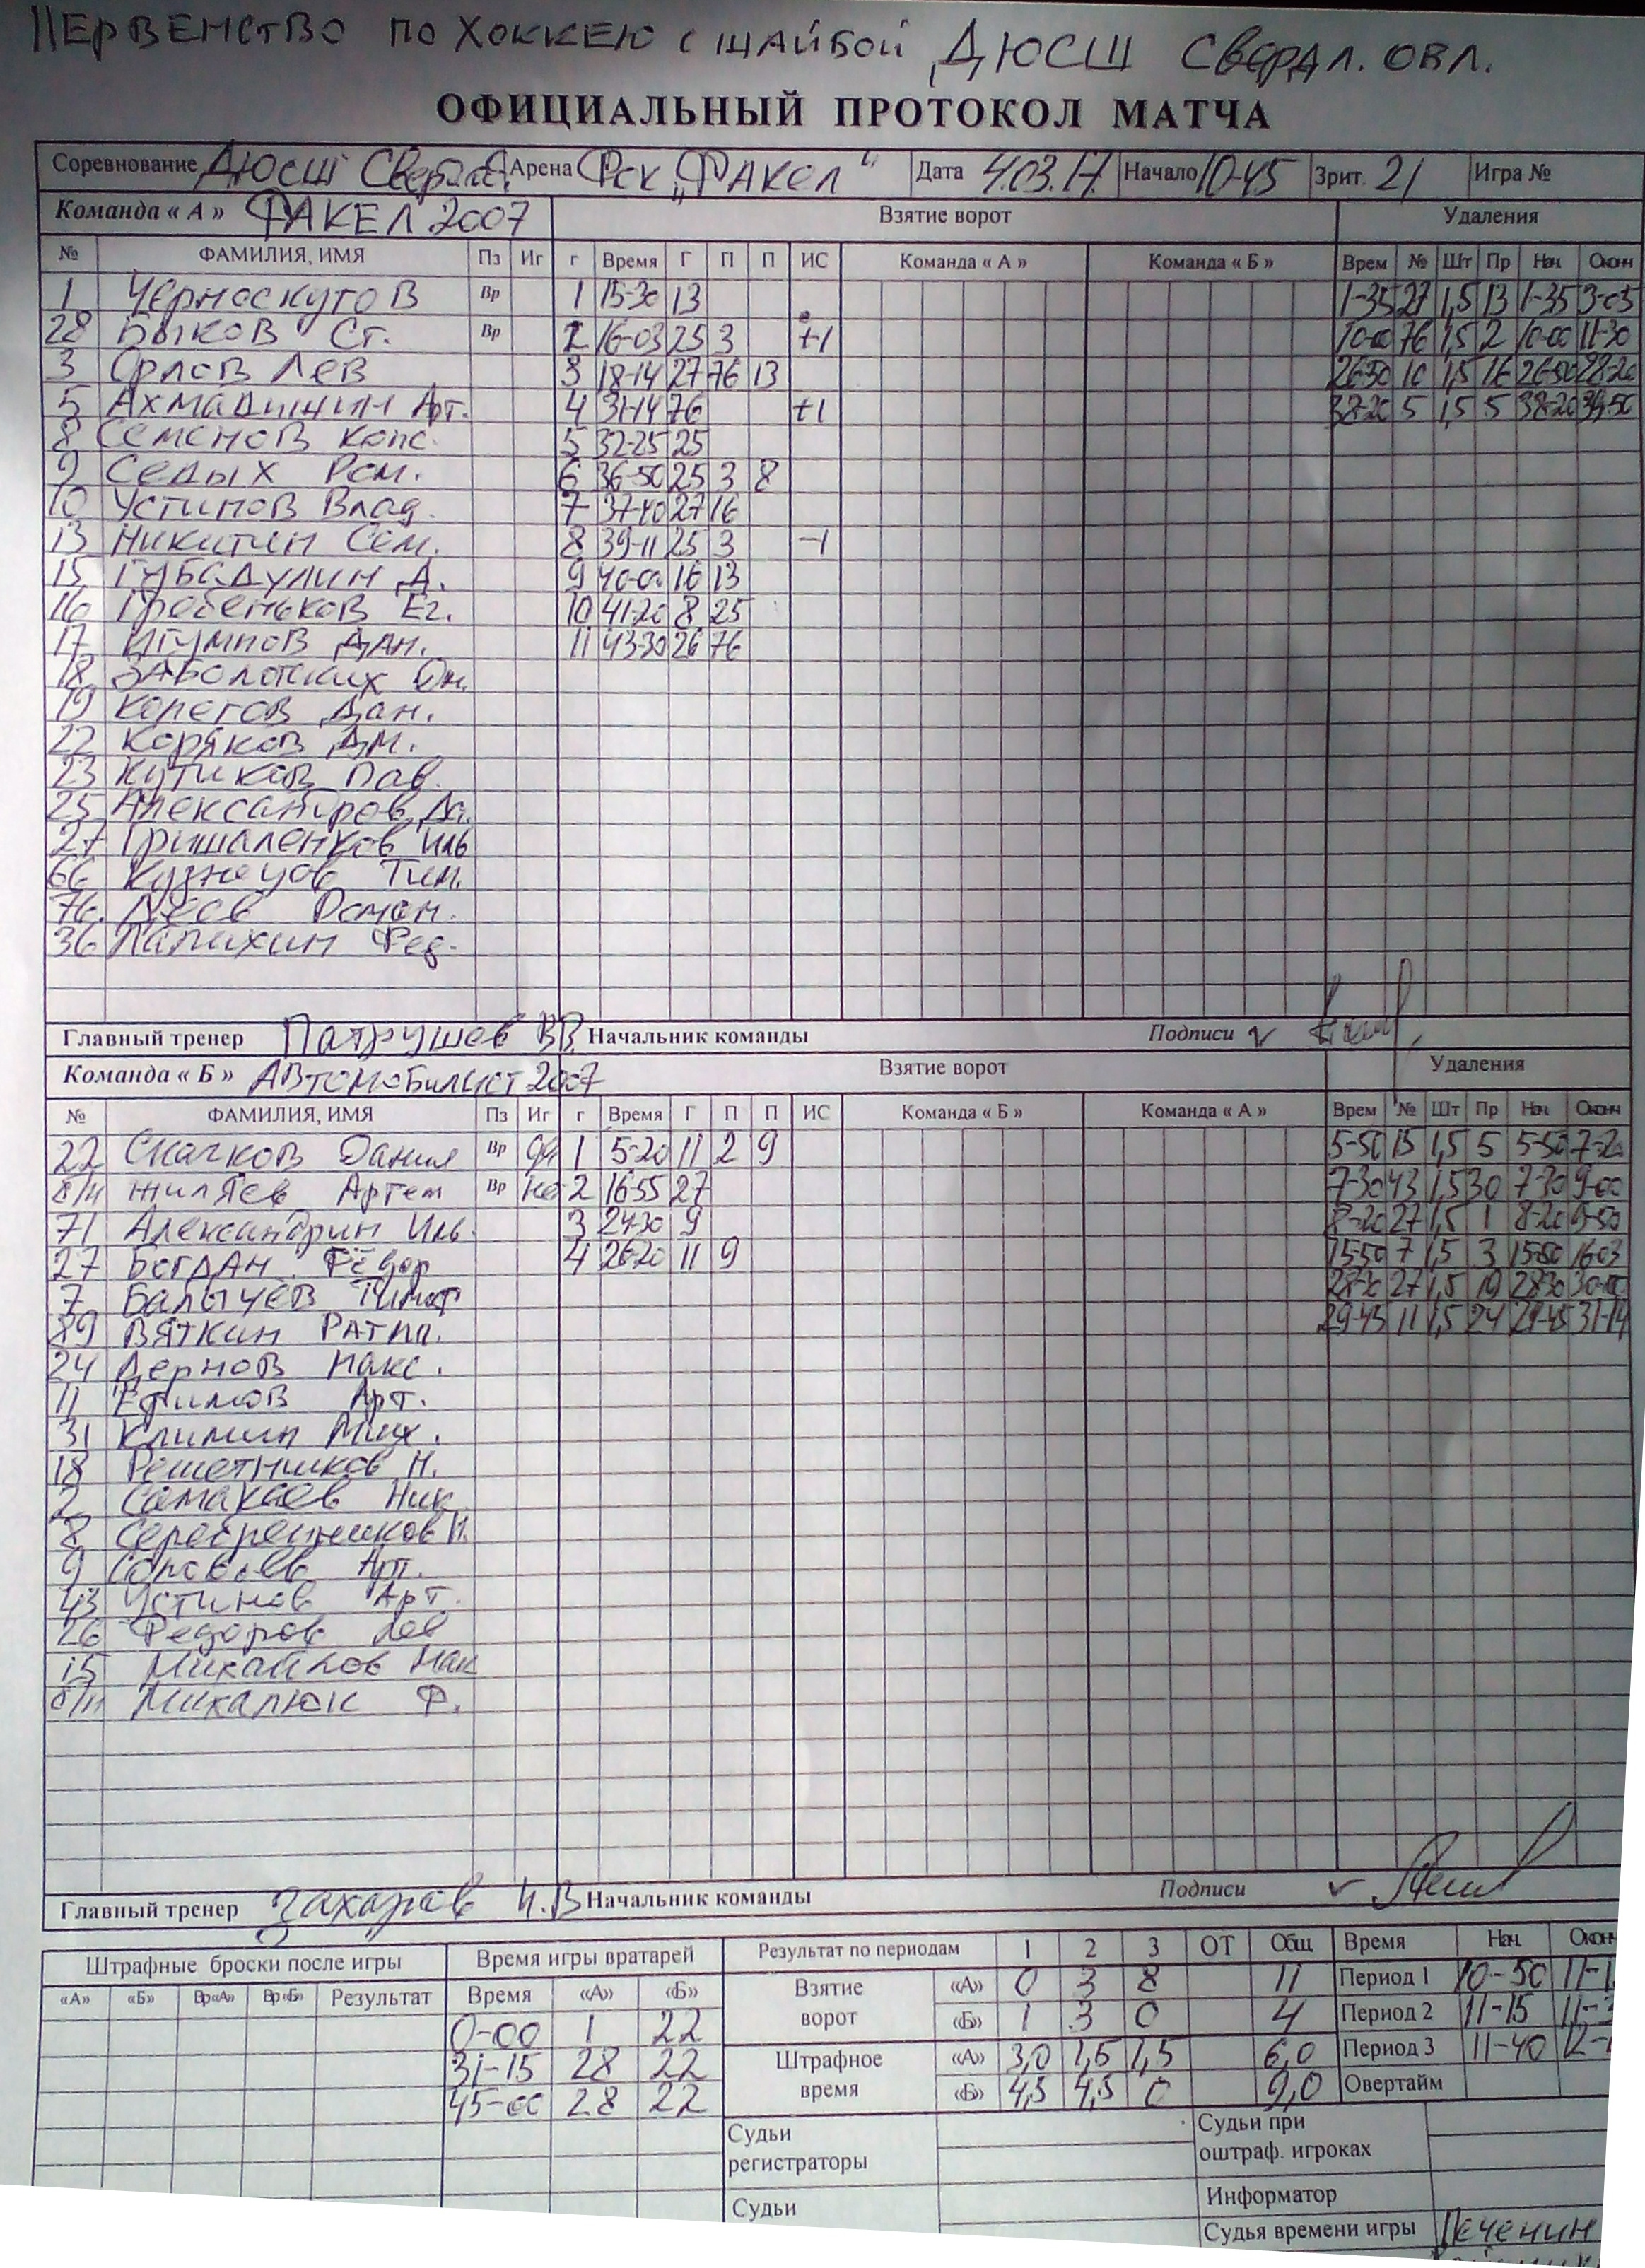 ПЕРВЕНСТВО ПО ХОККЕЮ С ШАЙБОЙ ДЮСШ СВЕРДЛ. ОБЛ.
ОФИЦИАЛЬНЫЙ ПРОТОКОЛ МАТЧА
Соревнование ДЮСШ Арена ФСК "ФАКЕЛ" Дата 4.03.17 Начало 10-45 Зрит. 21 Игра №
Команда « А » ФАКЕЛ 2007 Взятие ворот Удаления
№ ФАМИЛИЯ, ИМЯ Пз Иг г Время Г П П ИС Команда « А » Команда « Б » Врем № Шт Пр Нач. Оконч
1 Черноскутов Вр 1 15-30 13 1-35 27 1,5 13 1-35 3-05
28 Быков Ст. Вр 2 16-03 25 3 +1 10-00 76 1,5 2 10-00 11-30
3 Орлов Лев 3 18-14 27 76 13 26-50 10 1,5 16 26-50 28-20
5 Ахмадишин Арт. 4 31-14 76 +1 38-20 5 1,5 5 38-20 39-50
8 Семенов Конс. 5 32-25 25
9 Седых Ром. 6 36-50 25 3 8
10 Устинов Влад. 7 37-40 27 16
13 Никитин Сем. 8 39-11 25 3 -1
15 Губадулин Д. 9 40-00 16 13
16 Гребеньков Ег. 10 41-20 8 25
17 Игумнов Дан. 11 43-30 26 76
18 Заболотских
19 Копегов Дан.
22 Коряков Дм.
23 Кутиков Пав.
25 Александров Да.
27 Гришаленков Иль
66 Кузнецов Тим.
76 Роман.
36 Лапихин Фед.
Главный тренер Патрушев В.В. Начальник команды Подписи
Команда « Б » Автомобилист 2007 Взятие ворот Удаления
№ ФАМИЛИЯ, ИМЯ Пз Иг г Время Г П П ИС Команда « Б » Команда « А » Врем № Шт Пр Нач. Оконч
22 Скачков Данил Вр да 1 5-20 11 2 9 5-50 15 1,5 5 5-50 7-20
б/н Жиляев Артем Вр не 2 16-55 27 7-30 43 1,5 30 7-30 9-00
71 Александрин Иль. 3 24-30 9 8-20 27 1,5 1 8-20 9-50
27 Богдан Фёдор 4 26-20 11 9 15-50 7 1,5 3 15-50 16-03
7 Балычев Тимоф 28-30 27 1,5 19 28-30 30-00
89 Вяткин Ратм. 29-45 11 1,5 24 29-45 31-14
24 Дернов Макс.
11 Ефимов Арт.
31 Климин Мих.
18 Решетников Н.
2 Самакаев Ник.
8 Серебренников И.
9 Соловьев Арт.
43 Устинов Арт.
26 Федоров Лев
15 Михайлов Мак
б/н Михалюк Ф.
Главный тренер Захаров И.В Начальник команды Подписи
Штрафные броски после игры Время игры вратарей Результат по периодам 1 2 3 ОТ Общ. Время Нач. Оконч
«А» «Б» Вр«А» Вр«Б» Результат Время «А» «Б» Взятие ворот «А» 0 3 8 11 Период 1 10-50
0-00 1 22 «Б» 1 3 0 4 Период 2 11-15
31-15 28 22 Штрафное время «А» 3,0 1,5 1,5 6,0 Период 3 11-40
45-00 28 22 «Б» 4,5 4,5 0 9,0 Овертайм
Судьи регистраторы Судьи при оштраф. игроках
Судьи Информатор
Судья времени игры Печенин